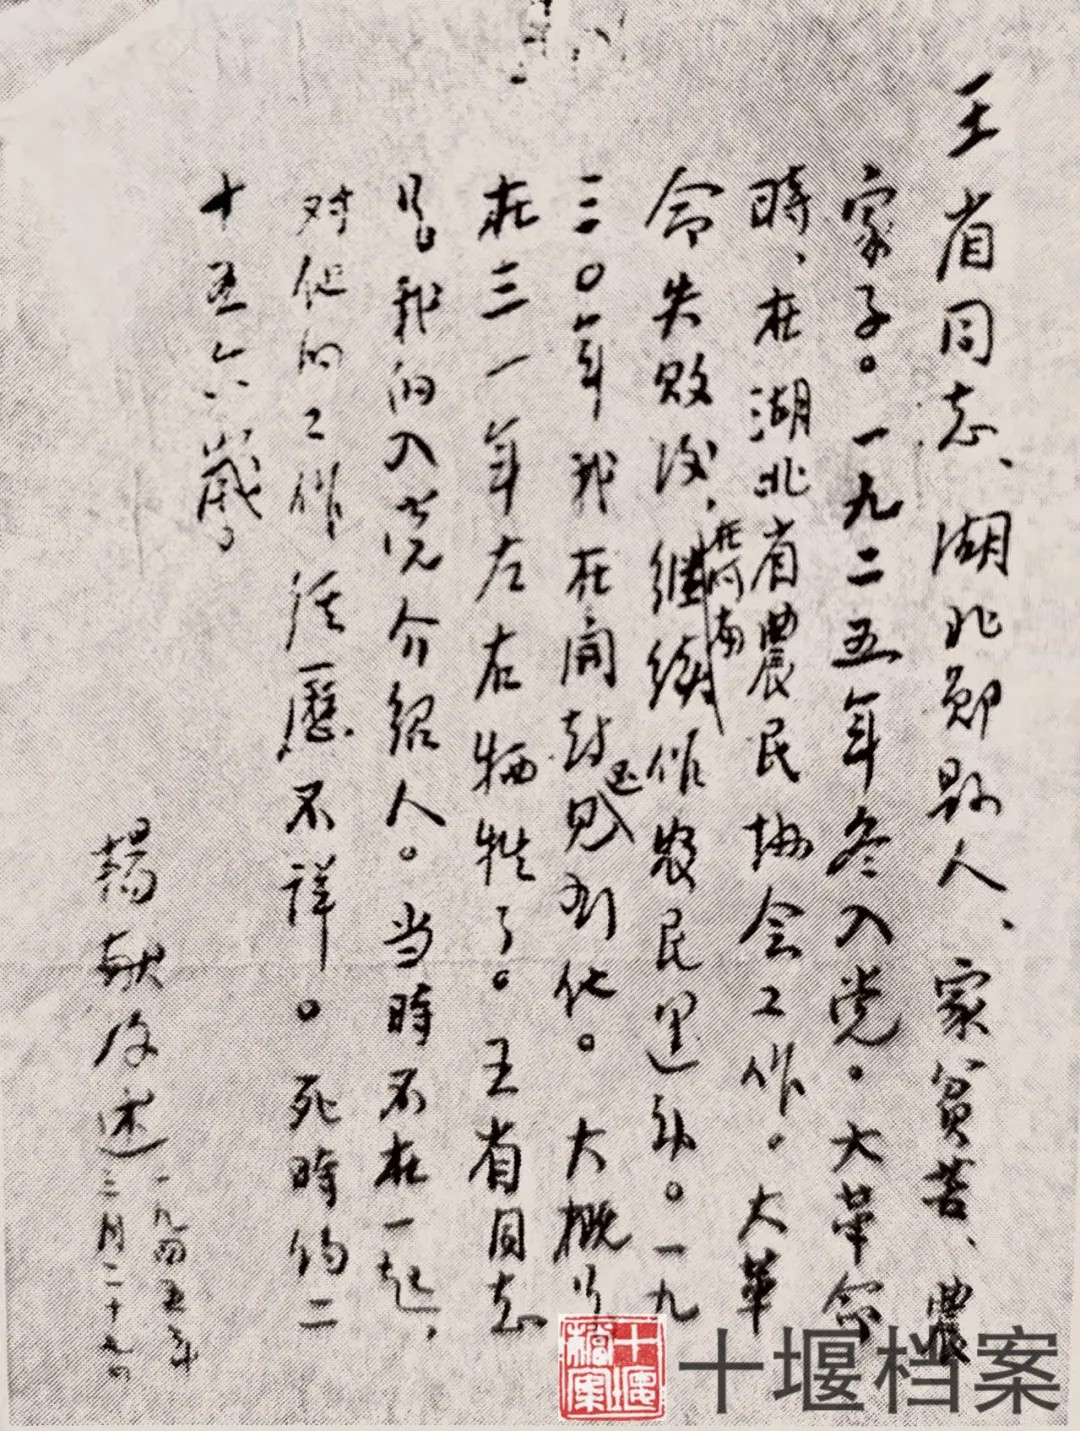 王省同志、湖北鄖县人、家貧苦、農
家子。一九二五年冬入党。大革命
時、在湖北省農民协会工作。大革
命失敗后，在河南继续作农民运动。一九
三〇年我在開封还見到他。大概是
在三一年左右牺牲了。王省同志
是我的入党介绍人。当時不在一起，
对他的工作活歷不詳。死時约二
十五六歲。
楊献珍述
一九四五年
三月二十九日
十堰档案
十堰档案